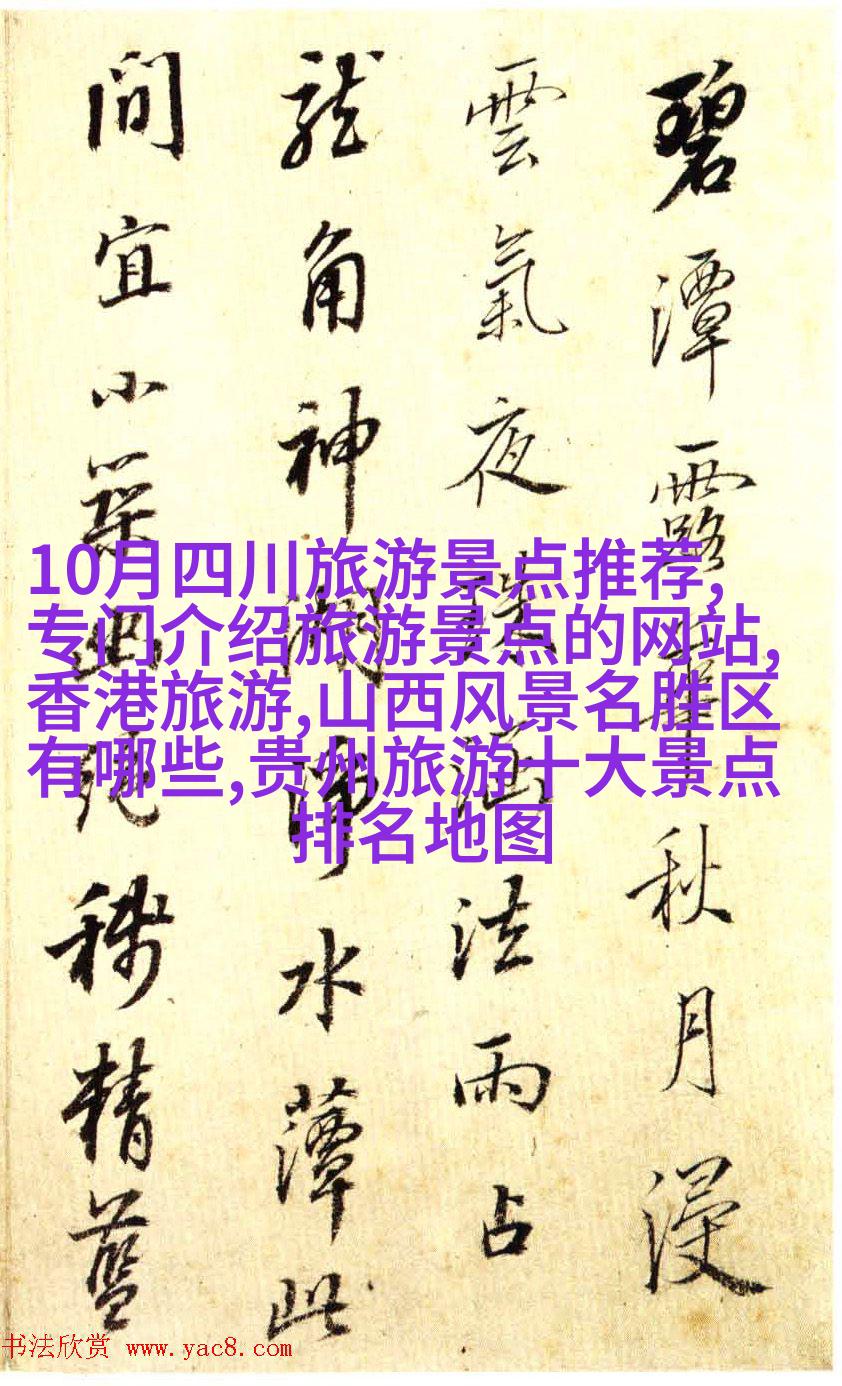 碧潭露華秋月浸
雲氣夜涵法雨占
龍角神湖淨水此
間宜小築幽絕精藍
10月四川旅游景点推荐,
专门介绍旅游景点的网站,
香港旅游,山西风景名胜区
有哪些,贵州旅游十大景点
排名地图
书法欣赏 www.yac8.com